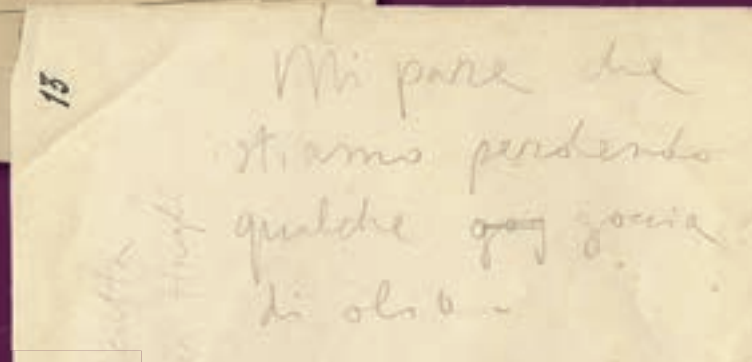 13
Mi pare che
stiamo perdendo
qualche gog goccia
di olio -